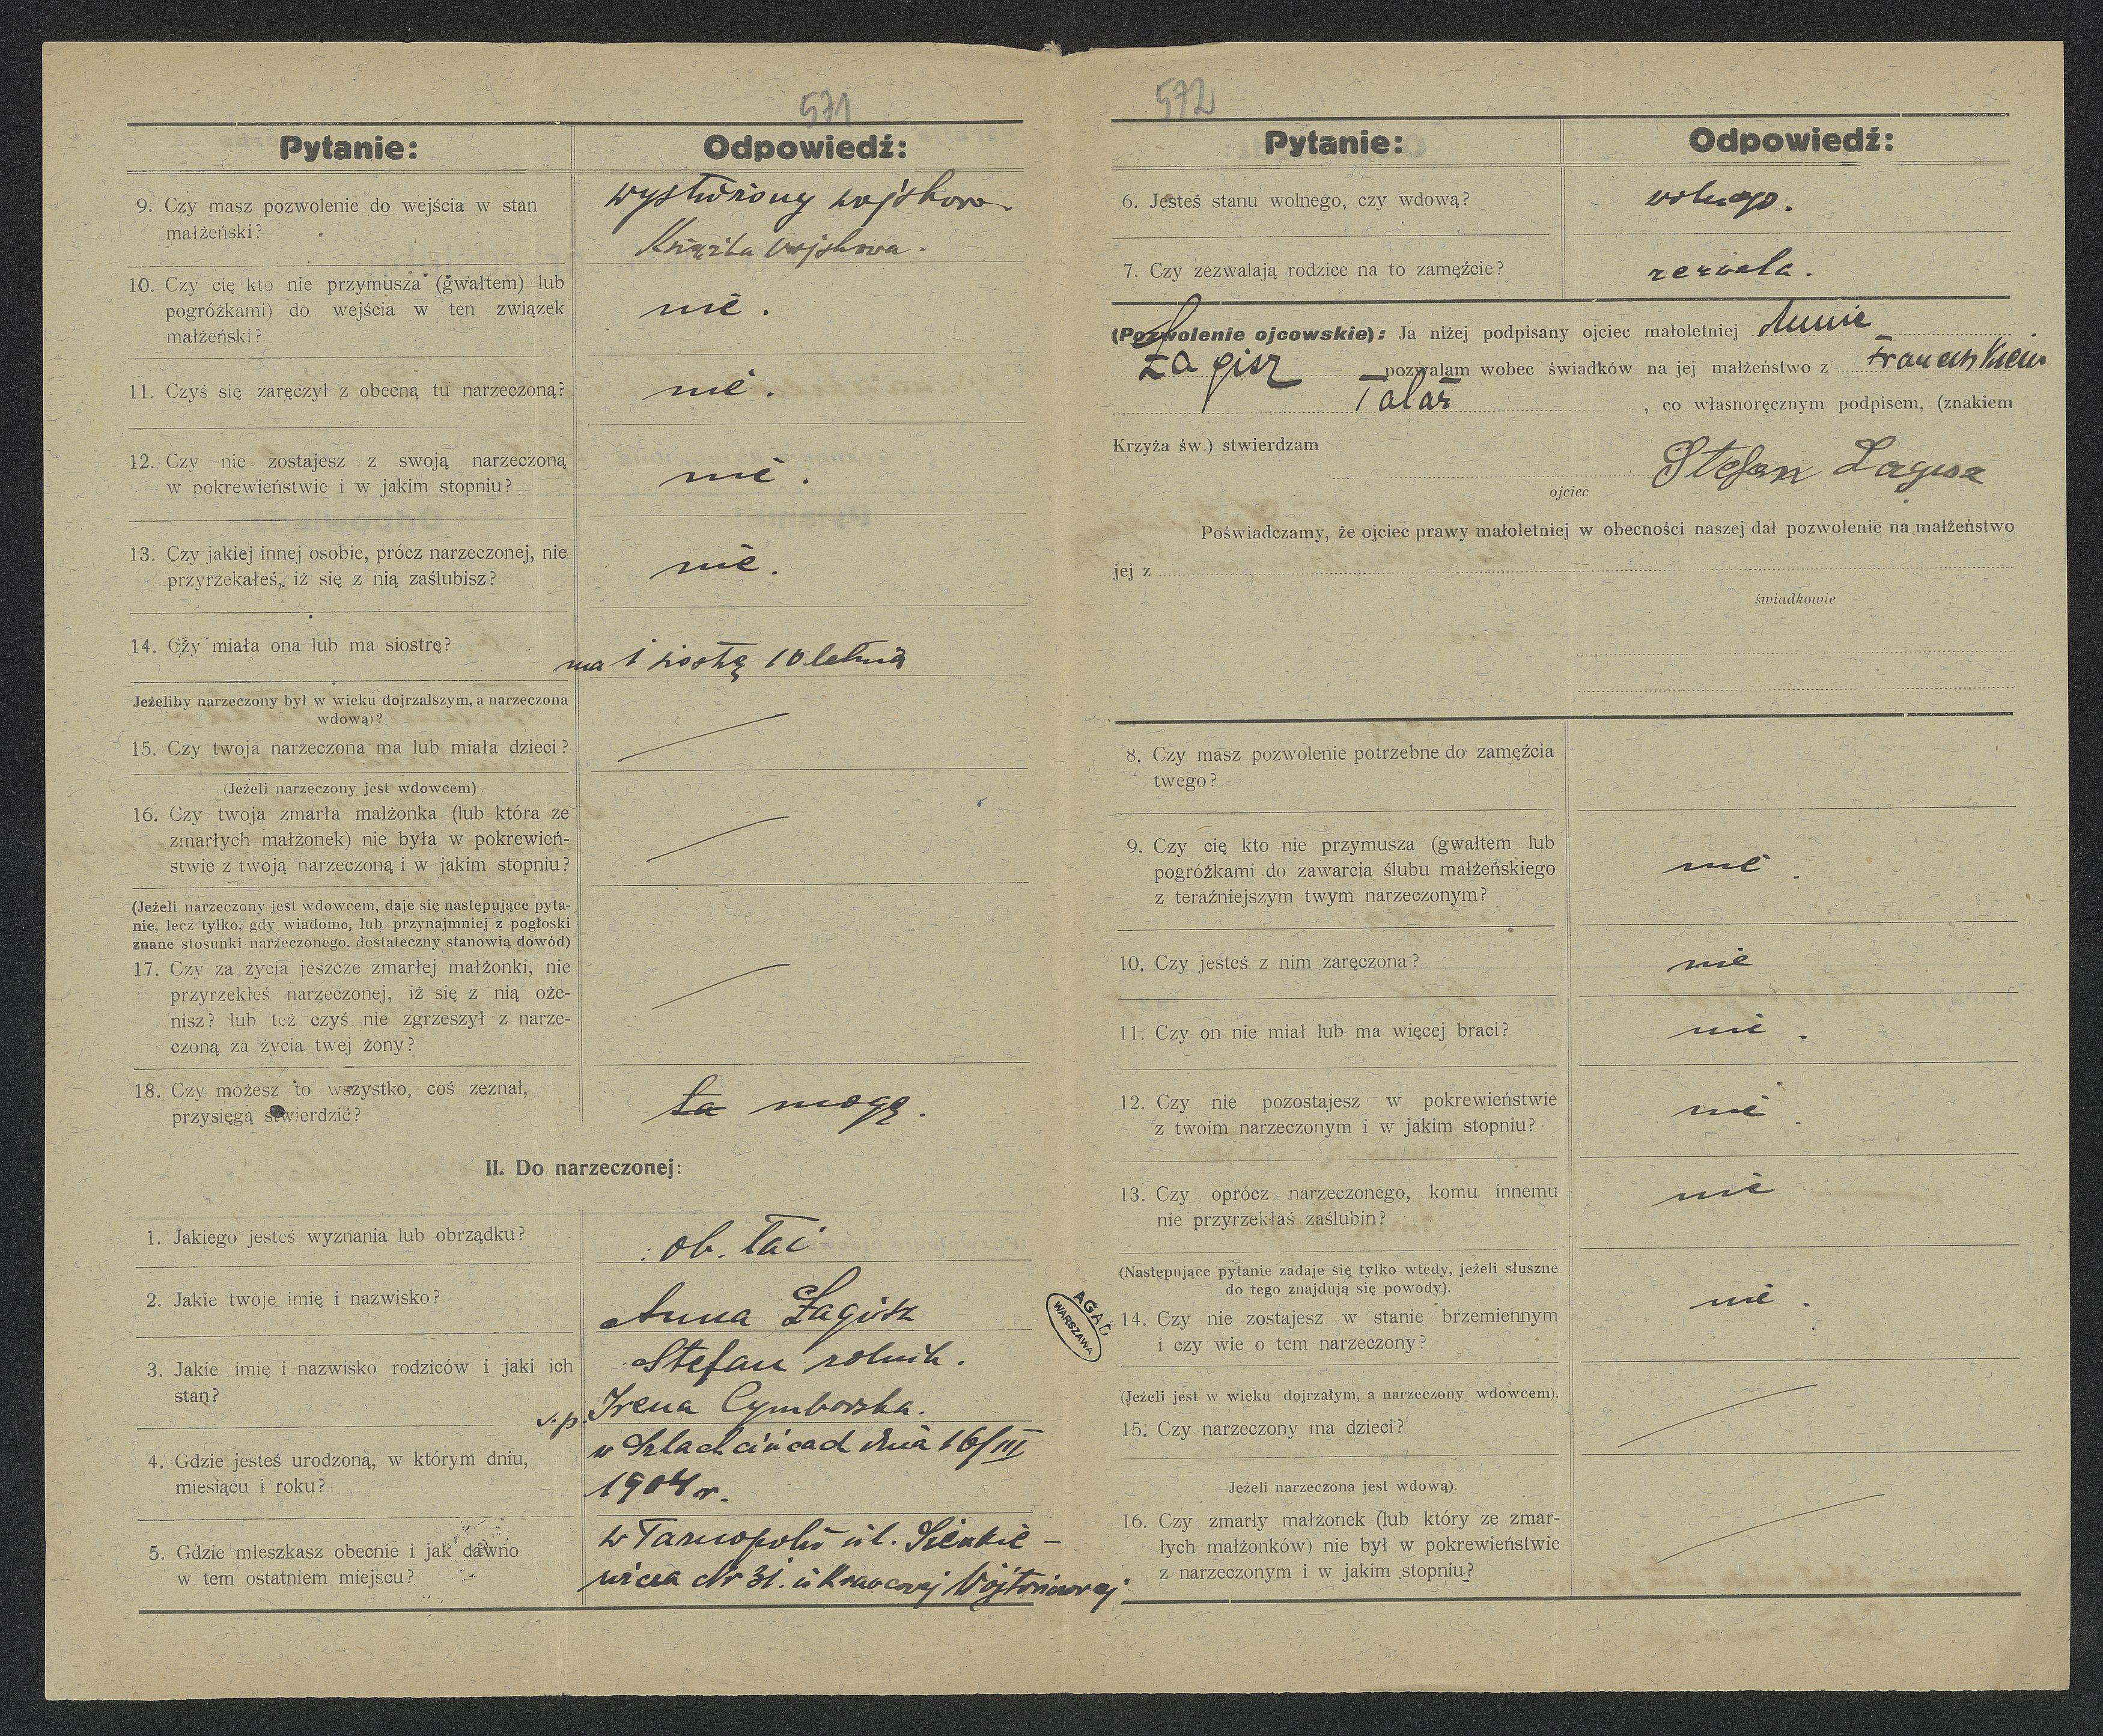 571
Pytanie:
Odpowiedź:
9. Czy masz pozwolenie do wejścia w stan
małżeński?
wysłużony wojskowo.
Książka wojskowa.
10. Czy cię kto nie przymusza (gwałtem) lub
pogróżkami) do wejścia w ten związek
małżeński?
nie.
11. Czyś się zaręczył z obecną tu narzeczoną?
nie.
12. Czy nie zostajesz z swoją narzeczoną
w pokrewieństwie i w jakim stopniu?
nie.
13. Czy jakiej innej osobie, prócz narzeczonej, nie
przyrzekałeś, iż się z nią zaślubisz?
nie.
14. Czy miała ona lub ma siostrę?
ma 1 siostrę 10 letnią
Jeżeliby narzeczony był w wieku dojrzalszym, a narzeczona
wdową)?
15. Czy twoja narzeczona ma lub miała dzieci?
(Jeżeli narzeczony jest wdowcem)
16. Czy twoja zmarła małżonka (lub która ze
zmarłych małżonek) nie była w pokrewień-
stwie z twoją narzeczoną i w jakim stopniu?
(Jeżeli narzeczony jest wdowcem, daje się następujące pyta-
nie, lecz tylko, gdy wiadomo, lub przynajmniej z pogłoski
znane stosunki narzeczonego, dostateczny stanowią dowód)
17. Czy za życia jeszcze zmarłej małżonki, nie
przyrzekłeś narzeczonej, iż się z nią oże-
nisz? lub też czyś nie zgrzeszył z narze-
czoną za życia twej żony?
18. Czy możesz to wszystko, coś zeznał,
przysięgą stwierdzić?
ta mogę.
II. Do narzeczonej:
1. Jakiego jesteś wyznania lub obrządku?
ob. łać
2. Jakie twoje imię i nazwisko?
Anna Łagisz
3. Jakie imię i nazwisko rodziców i jaki ich
stan?
Stefan rolnik.
ś.p. Irena Cymborska.
4. Gdzie jesteś urodzoną, w którym dniu,
miesiącu i roku?
w Szlachcińcach dnia 16/III
1904 r.
5. Gdzie mieszkasz obecnie i jak dawno
w tem ostatniem miejscu?
w Tarnopolu ul. Sienkie-
wicza Nr 31. u Krawcowej Wójtowiczowej.
572
Pytanie:
Odpowiedź:
6. Jesteś stanu wolnego, czy wdową?
wolnego.
7. Czy zezwalają rodzice na to zamęźcie?
zezwala.
(Pozwolenie ojcowskie): Ja niżej podpisany ojciec małoletniej Annie
Łagisz pozwalam wobec świadków na jej małżeństwo z Franciszkiem
Talar, co własnoręcznym podpisem, (znakiem
Krzyża św.) stwierdzam
Stefan Łagisz
ojciec
Poświadczamy, że ojciec prawy małoletniej w obecności naszej dał pozwolenie na małżeństwo
jej z
świadkowie
8. Czy masz pozwolenie potrzebne do zamęźcia
twego?
9. Czy cię kto nie przymusza (gwałtem lub
pogróżkami do zawarcia ślubu małżeńskiego
z teraźniejszym twym narzeczonym?
nie.
10. Czy jesteś z nim zaręczona?
nie
11. Czy on nie miał lub ma więcej braci?
nie.
12. Czy nie pozostajesz w pokrewieństwie
z twoim narzeczonym i w jakim stopniu?
nie.
13. Czy oprócz narzeczonego, komu innemu
nie przyrzekłaś zaślubin?
nie
(Następujące pytanie zadaje się tylko wtedy, jeżeli słuszne
do tego znajdują się powody).
14. Czy nie zostajesz w stanie brzemiennym
i czy wie o tem narzeczony?
nie.
AGAD
WARSZAWA
(Jeżeli jest w wieku dojrzałym, a narzeczony wdowcem).
15. Czy narzeczony ma dzieci?
Jeżeli narzeczona jest wdową).
16. Czy zmarły małżonek (lub który ze zmar-
łych małżonków) nie był w pokrewieństwie
z narzeczonym i w jakim stopniu?